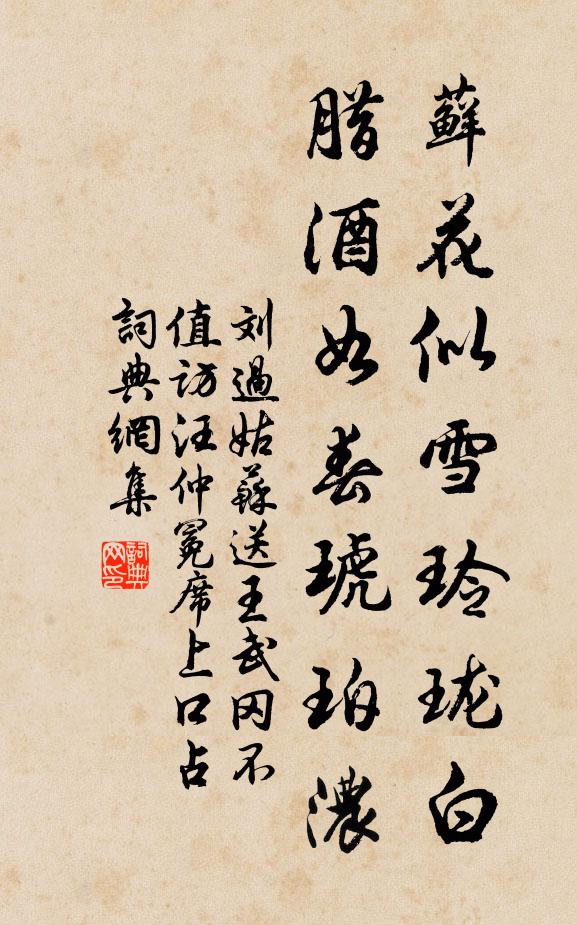 藓花似雪玲珑白
腊酒如春琥珀濃
刘過姑蘇送王武冈不
值访汪仲冕席上口占
詞典網集
詞典网印